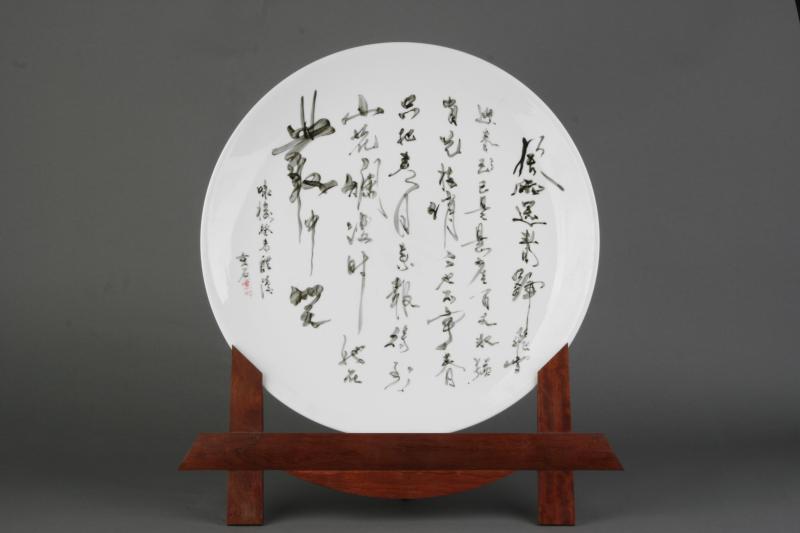 風雨送春歸飛雪
迎春到已是悬崖百丈冰猶
有花枝俏俏也不争春
只把春来報待到
山花爛漫时她在
叢中笑
咏梅 醴陵